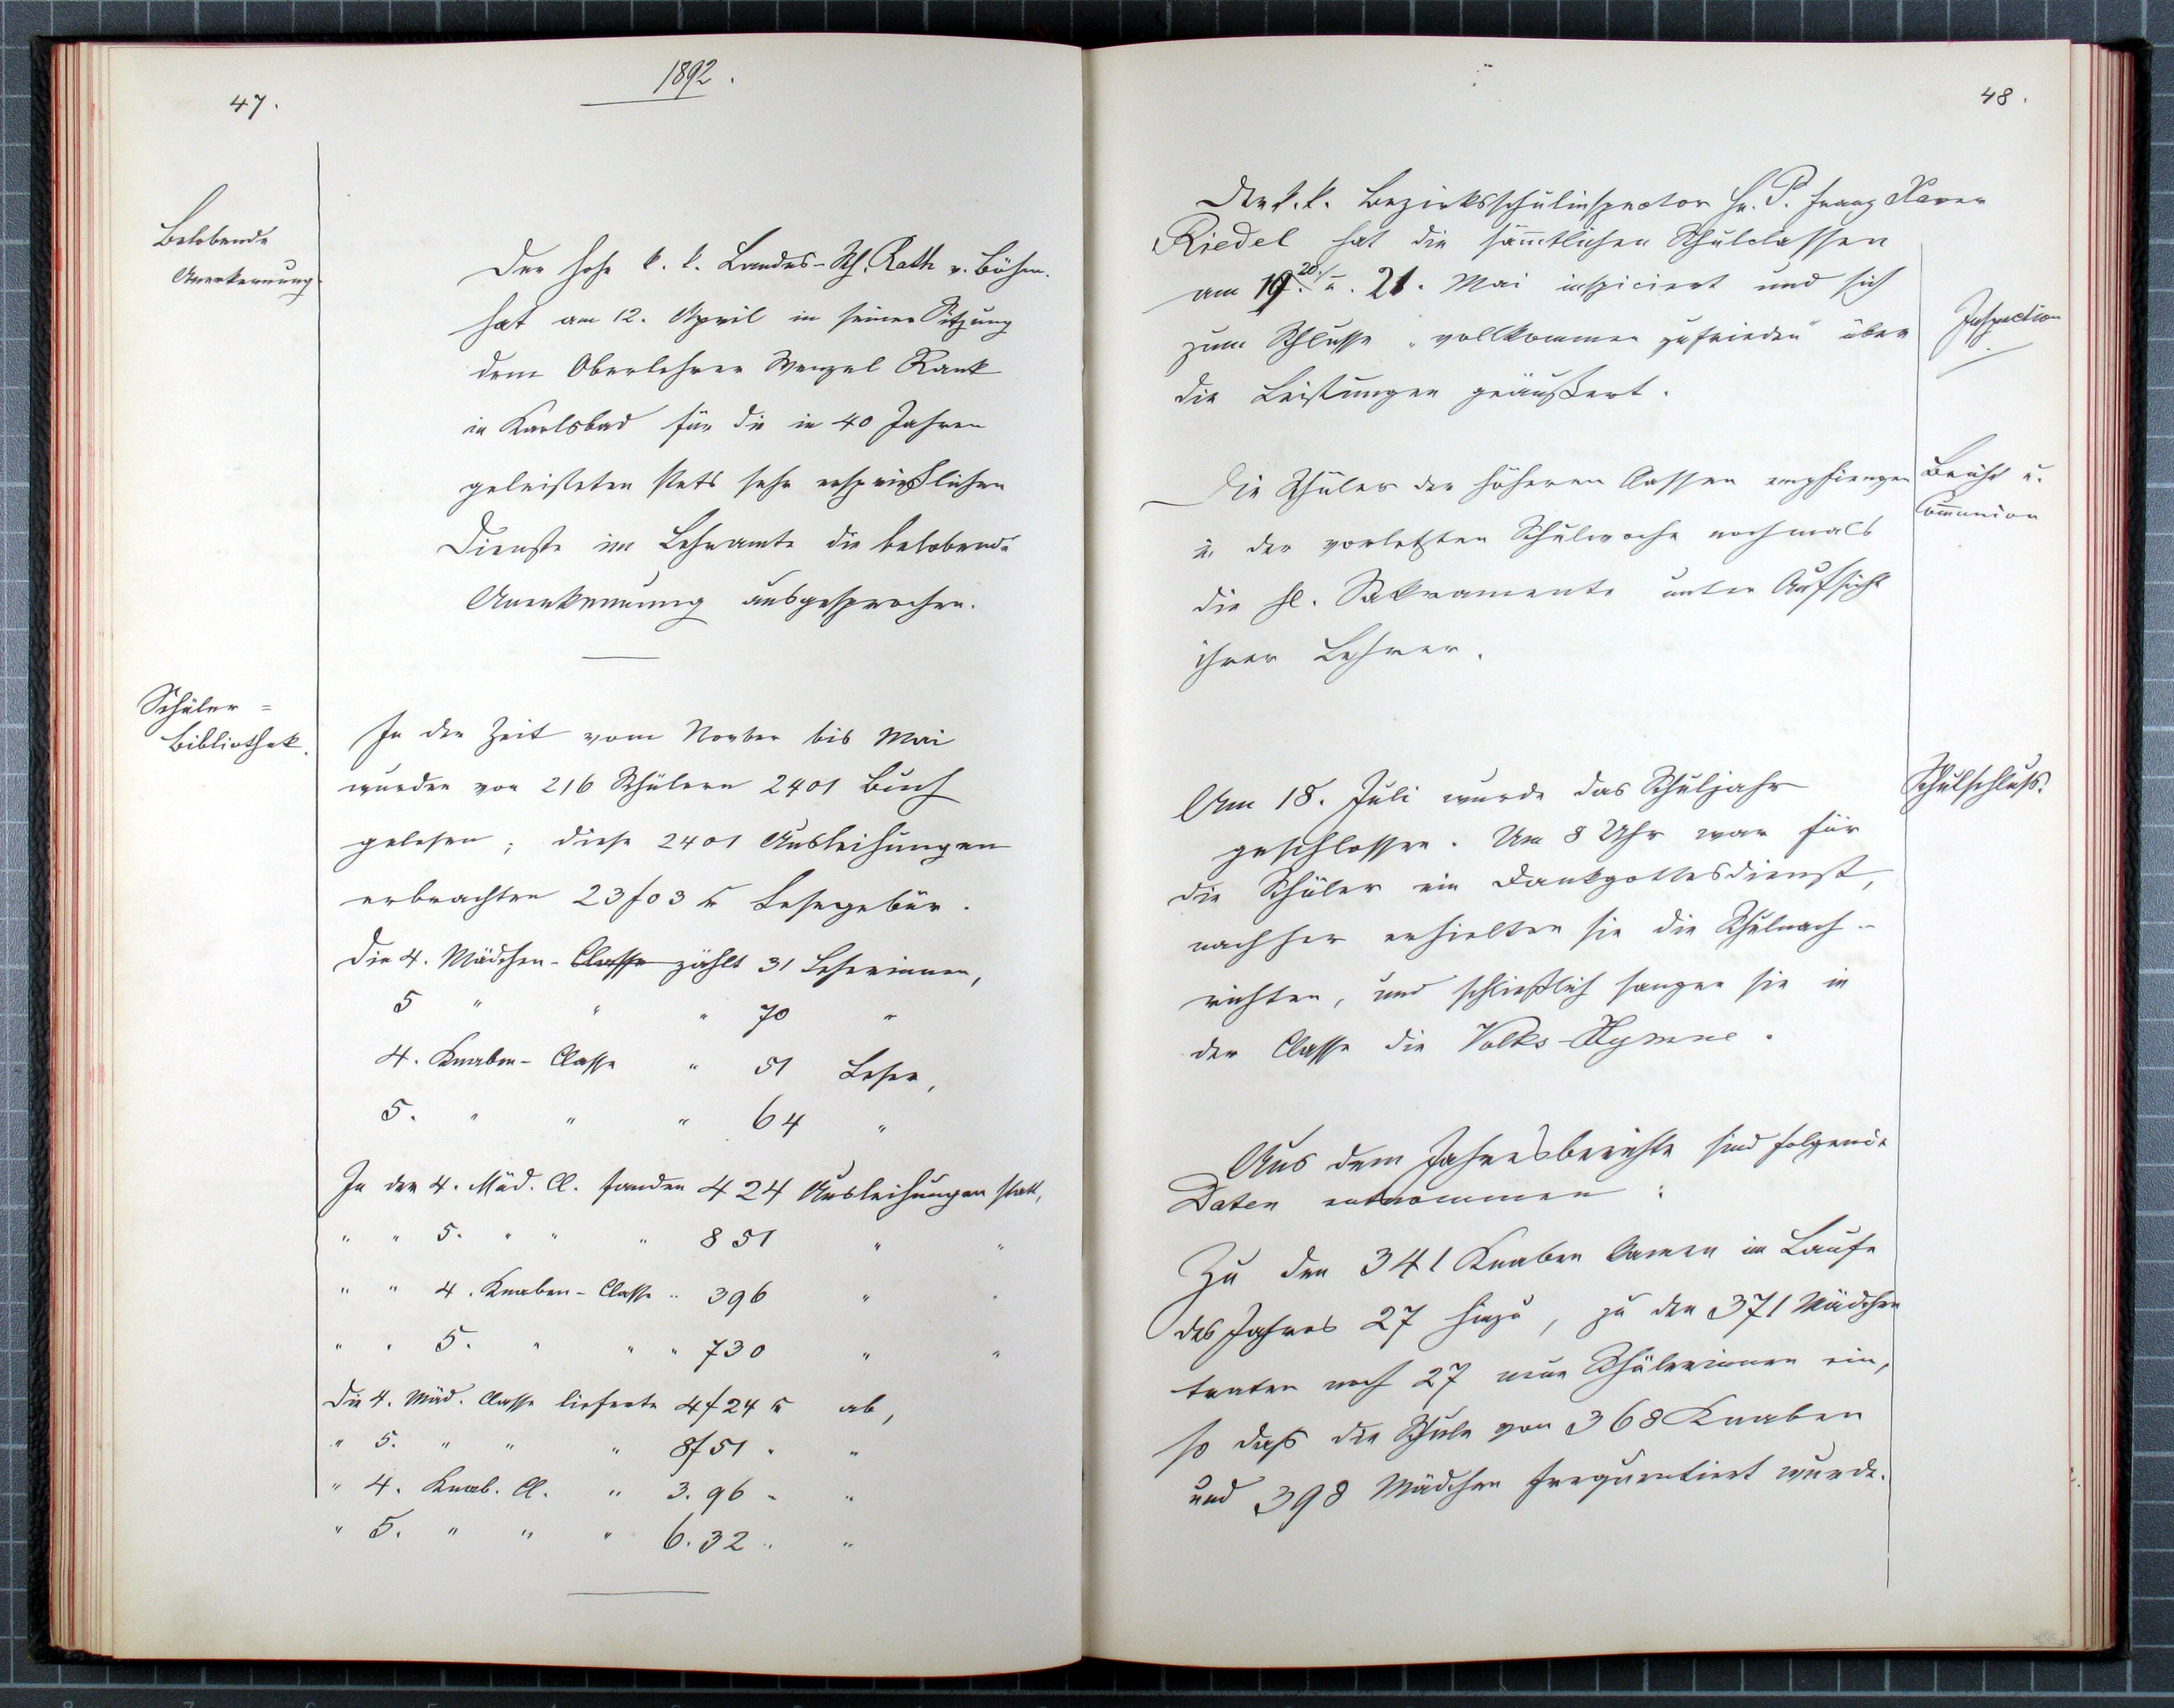 47.
1892.
Belobende
Anerkennung
Der hohe k. k. Landes-Sch. Rath v. Böhm.
hat am 12. April in seiner Sitzung
dem Oberlehrer Wenzel Rank
in Karlsbad für die in 40 Jahren
geleisteten stets sehr ersprießlichen
Dienste im Lehramte die belobende
Anerkennung ausgesprochen.
Schüler=
bibliothek.
In der Zeit vom Novber bis Mai
wurden von 216 Schülern 2401 Buch
gelesen; diese 2401 Ausleihungen
erbrachten 23f03 kr Lesegebür.
Die 4. Mädchen-Classe zählt 31 Leserinnen,
5 " " " 70 "
4. Knaben-Classe " 51 Leser,
5. " " " 64 "
In der 4. Mäd. Cl. fanden 424 Ausleihungen statt,
" " 5. " " " 851 " "
" " 4. Knaben-Classe " 396 " "
" " 5. " " " 730 " "
Die 4. Mäd. Classe lieferte 4f24 kr ab,
" 5. " " " 8f51 " "
" 4. Knab. Cl. " 3.96 " "
" 5. " " " 6.32 " "
48.
Der k. k. Bezirksschulinspector Hr. P. Franz Xaver
Riedel hat die sämtlichen Schulclassen
am 19. 20. u. 21. Mai inspiciert und sich
zum Schlusse "vollkommen zufrieden" über
die Leistungen geäußert.
Inspection
Die Schüler der höheren Classen empfiengen
in der vorletzten Schulwoche nochmals
die hl. Sakramente unter Aufsicht
ihrer Lehrer.
Beicht u.
Communion
Am 18. Juli wurde das Schuljahr
geschlossen. Um 8 Uhr war für
die Schüler ein Dankgottesdienst,
nachher erhielten sie die Schulnach-
richten, und schließlich sangen sie in
der Classe die Volks-Hymne.
Schulschluß.
Aus dem Jahresberichte sind folgende
Daten entnommen:
Zu den 341 Knaben kamen im Laufe
des Jahres 27 hinzu, zu den 371 Mädchen
traten noch 27 neue Schülerinnen ein,
so daß die Schule von 368 Knaben
und 398 Mädchen frequentiert wurde.